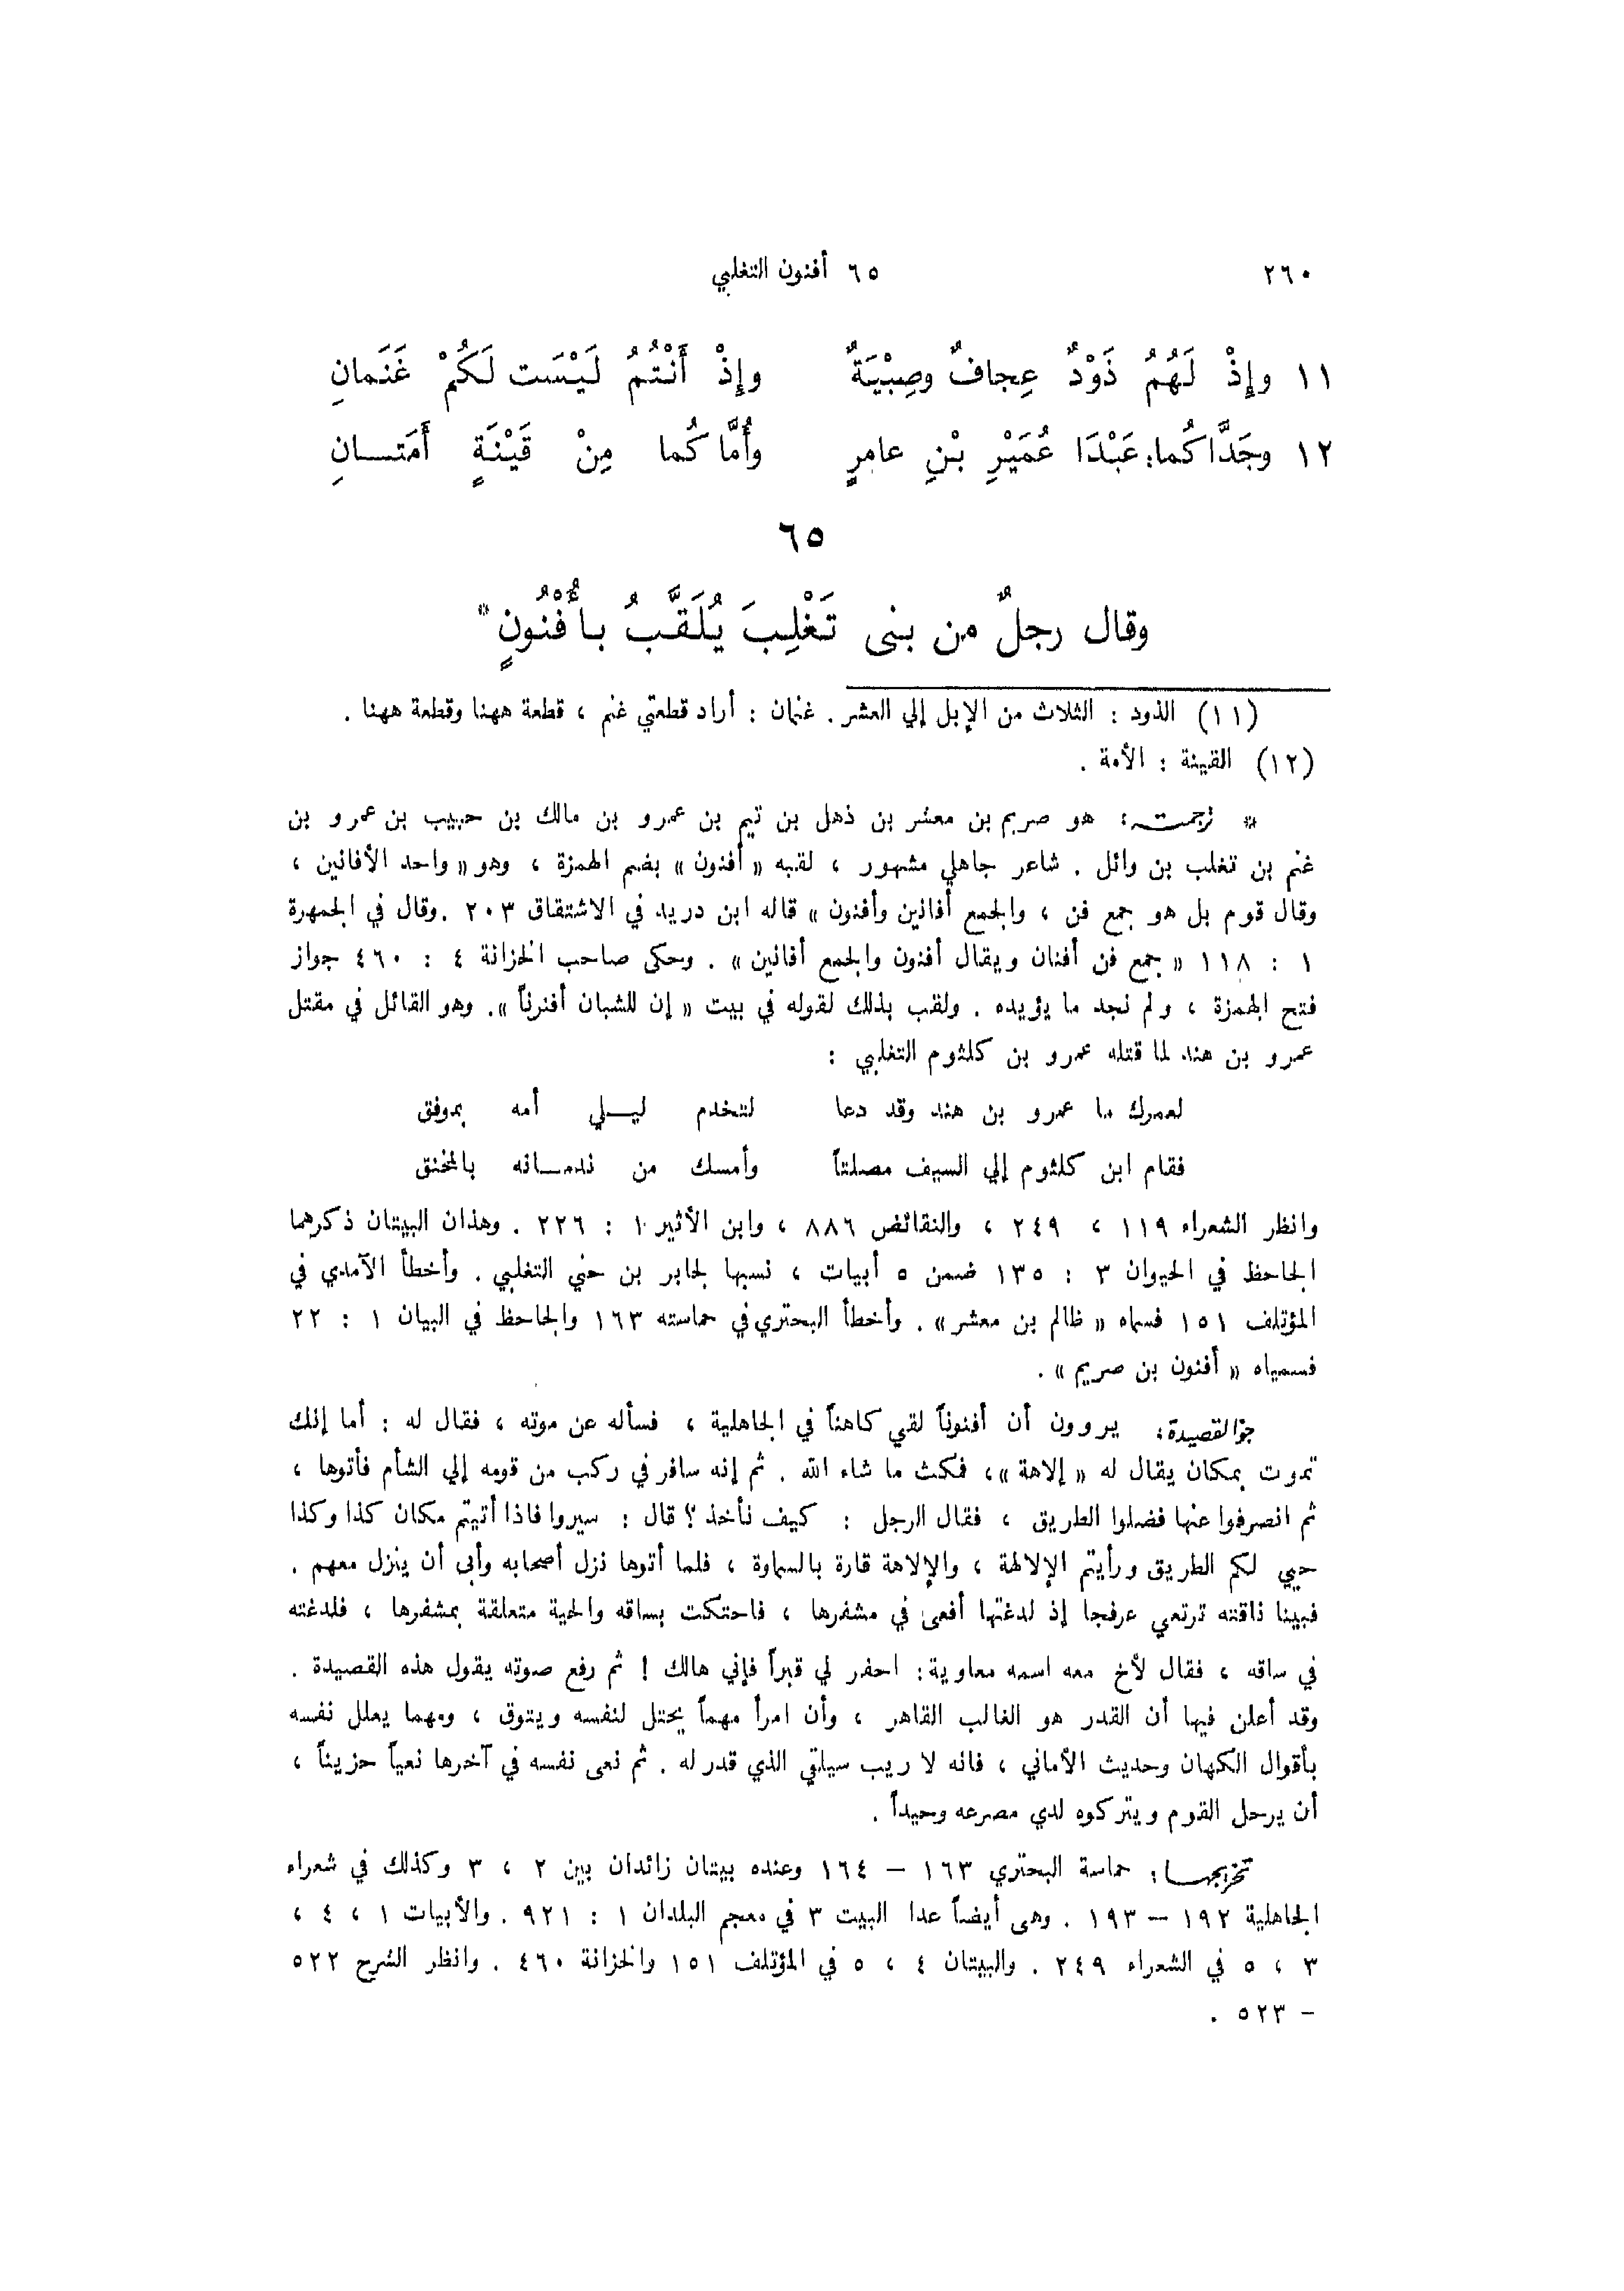 ٢٦٠ ٦٥ أفنون التغلبي
١١ وإِذْ لَهُمُ ذَوْدٌ عِجافٌ وصِبْيَةٌ وإِذْ أَنْتُمُ لَيْسَت لَكُمْ غَنَمانِ
١٢ وجَدَّاكُما: عَبْدَا عُمَيْرِ بْنِ عامِرٍ وأُمَّاكُما مِنْ قَيْنَةٍ أَمَتــانِ
٦٥
وقال رجلٌ من بنى تَغْلِبَ يُلَقَّبُ بأُفْنُونٍ*
(١١) الذود : الثلاث من الإبل إلي العشر . غنمان : أراد قطعتي غنم ، قطعة ههنا وقطعة ههنا .
(١٢) القينة : الأمة .
* ترجمته: هو صريم بن معشر بن ذهل بن تيم بن عمرو بن مالك بن حبيب بن عمرو بن
غنم بن تغلب بن وائل . شاعر جاهلي مشهور ، لقبه « أفنون » بضم الهمزة ، وهو « واحد الأفانين ،
وقال قوم بل هو جمع فن ، والجمع أفانين وأفنون » قاله ابن دريد في الاشتقاق ٢٠٣ . وقال في الجمهرة
١ : ١١٨ « جمع فن أفنان ويقال أفنون والجمع أفانين » . وحكى صاحب الخزانة ٤ : ٤٦٠ جواز
فتح الهمزة ، ولم نجد ما يؤيده . ولقب بذلك لقوله في بيت « إن للشبان أفنوناً ». وهو القائل في مقتل
عمرو بن هند لما قتله عمرو بن كلثوم التغلبي :
لعمرك ما عمرو بن هند وقد دعا لتخدم ليــلي أمه بموفق
فقام ابن كلثوم إلي السيف مصلتاً وأمسك من ندمــانه بالمخنق
وانظر الشعراء ١١٩ ، ٢٤٩ ، والنقائض ٨٨٦ ، وابن الأثير ١ : ٢٢٦ . وهذان البيتان ذكرهما
الجاحظ في الحيوان ٣ : ١٣٥ ضمن ٥ أبيات ، نسبها لجابر بن حني التغلبي . وأخطأ الآمدي في
المؤتلف ١٥١ فسماه « ظالم بن معشر » . وأخطأ البحتري في حماسته ١٦٣ والجاحظ في البيان ١ : ٢٢
فسمياه « أفنون بن صريم » .
جوّ القصيدة: يروون أن أفنوناً لقي كاهناً في الجاهلية ، فسأله عن موته ، فقال له : أما إنك
تموت بمكان يقال له « إلاهة » ، فمكث ما شاء الله . ثم إنه سافر في ركب من قومه إلي الشأم فأتوها ،
ثم انصرفوا عنها فضلوا الطريق ، فقال الرجل : كيف نأخذ ؟ قال : سيروا فاذا أتيتم مكان كذا وكذا
حيي لكم الطريق ورأيتم الإلالهة ، والإلاهة قارة بالسماوة ، فلما أتوها نزل أصحابه وأبى أن ينزل معهم .
فبينا ناقته ترتعي عرفجا إذ لدغتها أفعى في مشفرها ، فاحتكت بساقه والحية متعلقة بمشفرها ، فلدغته
في ساقه ، فقال لأخ معه اسمه معاوية : احفر لي قبراً فإني هالك ! ثم رفع صوته يقول هذه القصيدة .
وقد أعلن فيها أن القدر هو الغالب القاهر ، وأن امرأ مهماً يحتل لنفسه ويتوق ، ومهما يعلل نفسه
بأقوال الكهان وحديث الأماني ، فانه لا ريب سيلقي الذي قدر له . ثم نعى نفسه في آخرها نعياً حزيناً ،
أن يرحل القوم ويتركوه لدي مصرعه وحيداً .
تخريجهــا: حماسة البحتري ١٦٣ – ١٦٤ وعنده بيتان زائدان بين ٢ ، ٣ وكذلك في شعراء
الجاهلية ١٩٢ – ١٩٣ . وهى أيضاً عدا البيت ٣ في معجم البلدان ١ : ٩٢١ . والأبيات ١ ، ٤ ،
٣ ، ٥ في الشعراء ٢٤٩ . والبيتان ٤ ، ٥ في المؤتلف ١٥١ والخزانة ٤٦٠ . وانظر الشرح ٥٢٢
– ٥٢٣ .